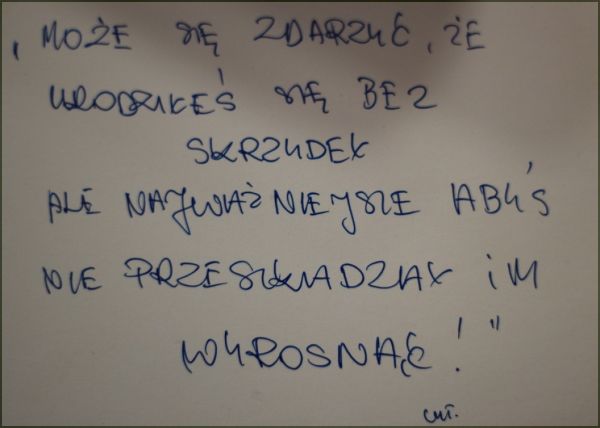 , MOŻE SIĘ ZDARZYĆ, ŻE
URODZIŁEŚ SIĘ BEZ
SKRZYDEŁ
ALE NAJWAŻNIEJSZE ABYŚ
NIE PRZESZKADZAŁ IM
WYROSNĄĆ!"
cyt.